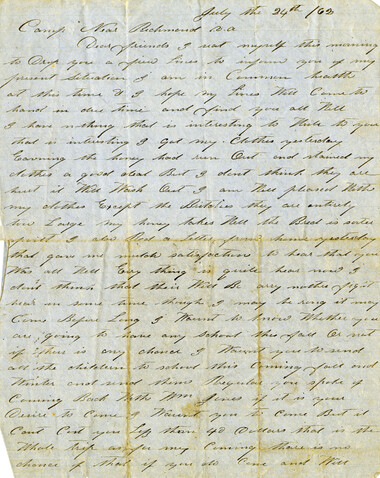 July the 24th /62
Camp Near Richmond Va
Dear friends I seat myself this morning
to Drop you a few lines to inform you of my
present Situation I am in Common health
at this time & I hope my lines Will Come to
hand in due time and find you all Well
I have nothing that is interesting to Write to you
that is interesting I got my Clothes yesterday
Evening the honey had run Out and stained my
clothes a good deal But I dont think they are
hurt it Will Wash Out I am Well pleased With
my clothes Except the they are entirely
too Large my honey takes Well the Bread is
I also Red a letter from home yesterday
that gave me mutch satisfaction to hear that you
Was all Well Evry thing is quite hear now I
dont think that their Will B any nother fight
hear in some time though I may be rong it may
Come Before Long I Waunt to know Whether you
are going to have any school this fall Or not
if there is any chance I Waunt you to send
all the children to school this Coming fall and
Winter and send them Regular you spoke of
Coming Back With Wm Jones if it is your
Desire to Come I Waunt you to Come But it
Cant Cost you Less than 40 Dollars that is the
Whole trip as for my Coming there is no
chance of that if you do Come and Will